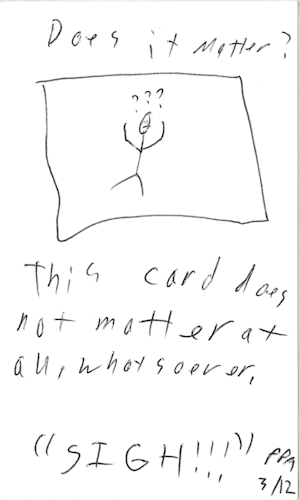 Does it matter?
???
This card does
not matter at
all, whatsoever.
"SIGH!!!" PPA
3/12